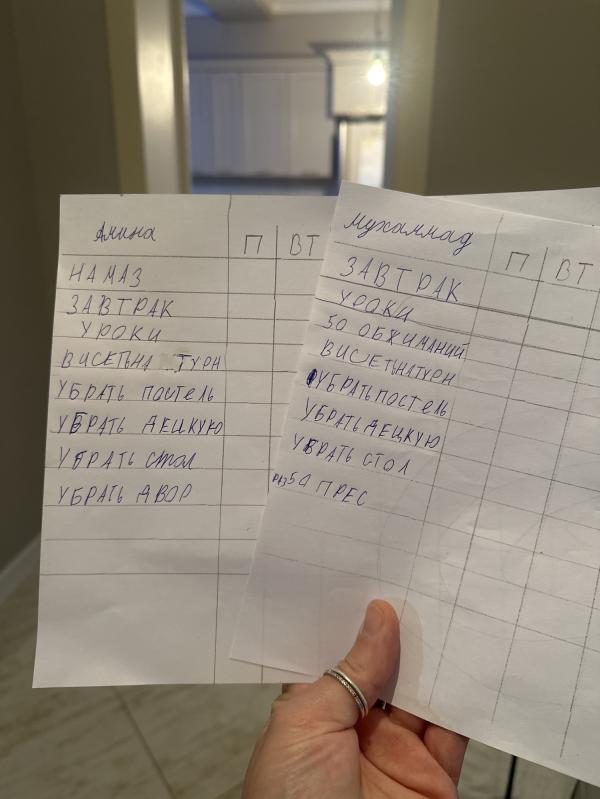 Амина П ВТ
НАМАЗ
ЗАВТРАК
УРОКИ
ВИСЕТЬНА ТУРН
УБРАТЬ ПОСТЕЛЬ
УБРАТЬ ДЕЦКУЮ
УБРАТЬ СТОЛ
УБРАТЬ ДВОР
Мухаммад П ВТ
ЗАВТРАК
УРОКИ
50 ОБЖИМАНИЙ
ВИСЕТЬНАТУРН
УБРАТЬПОСТЕЛЬ
УБРАТЬ ДЕЦКУЮ
УБРАТЬ СТОЛ
РАЗ50 ПРЕС